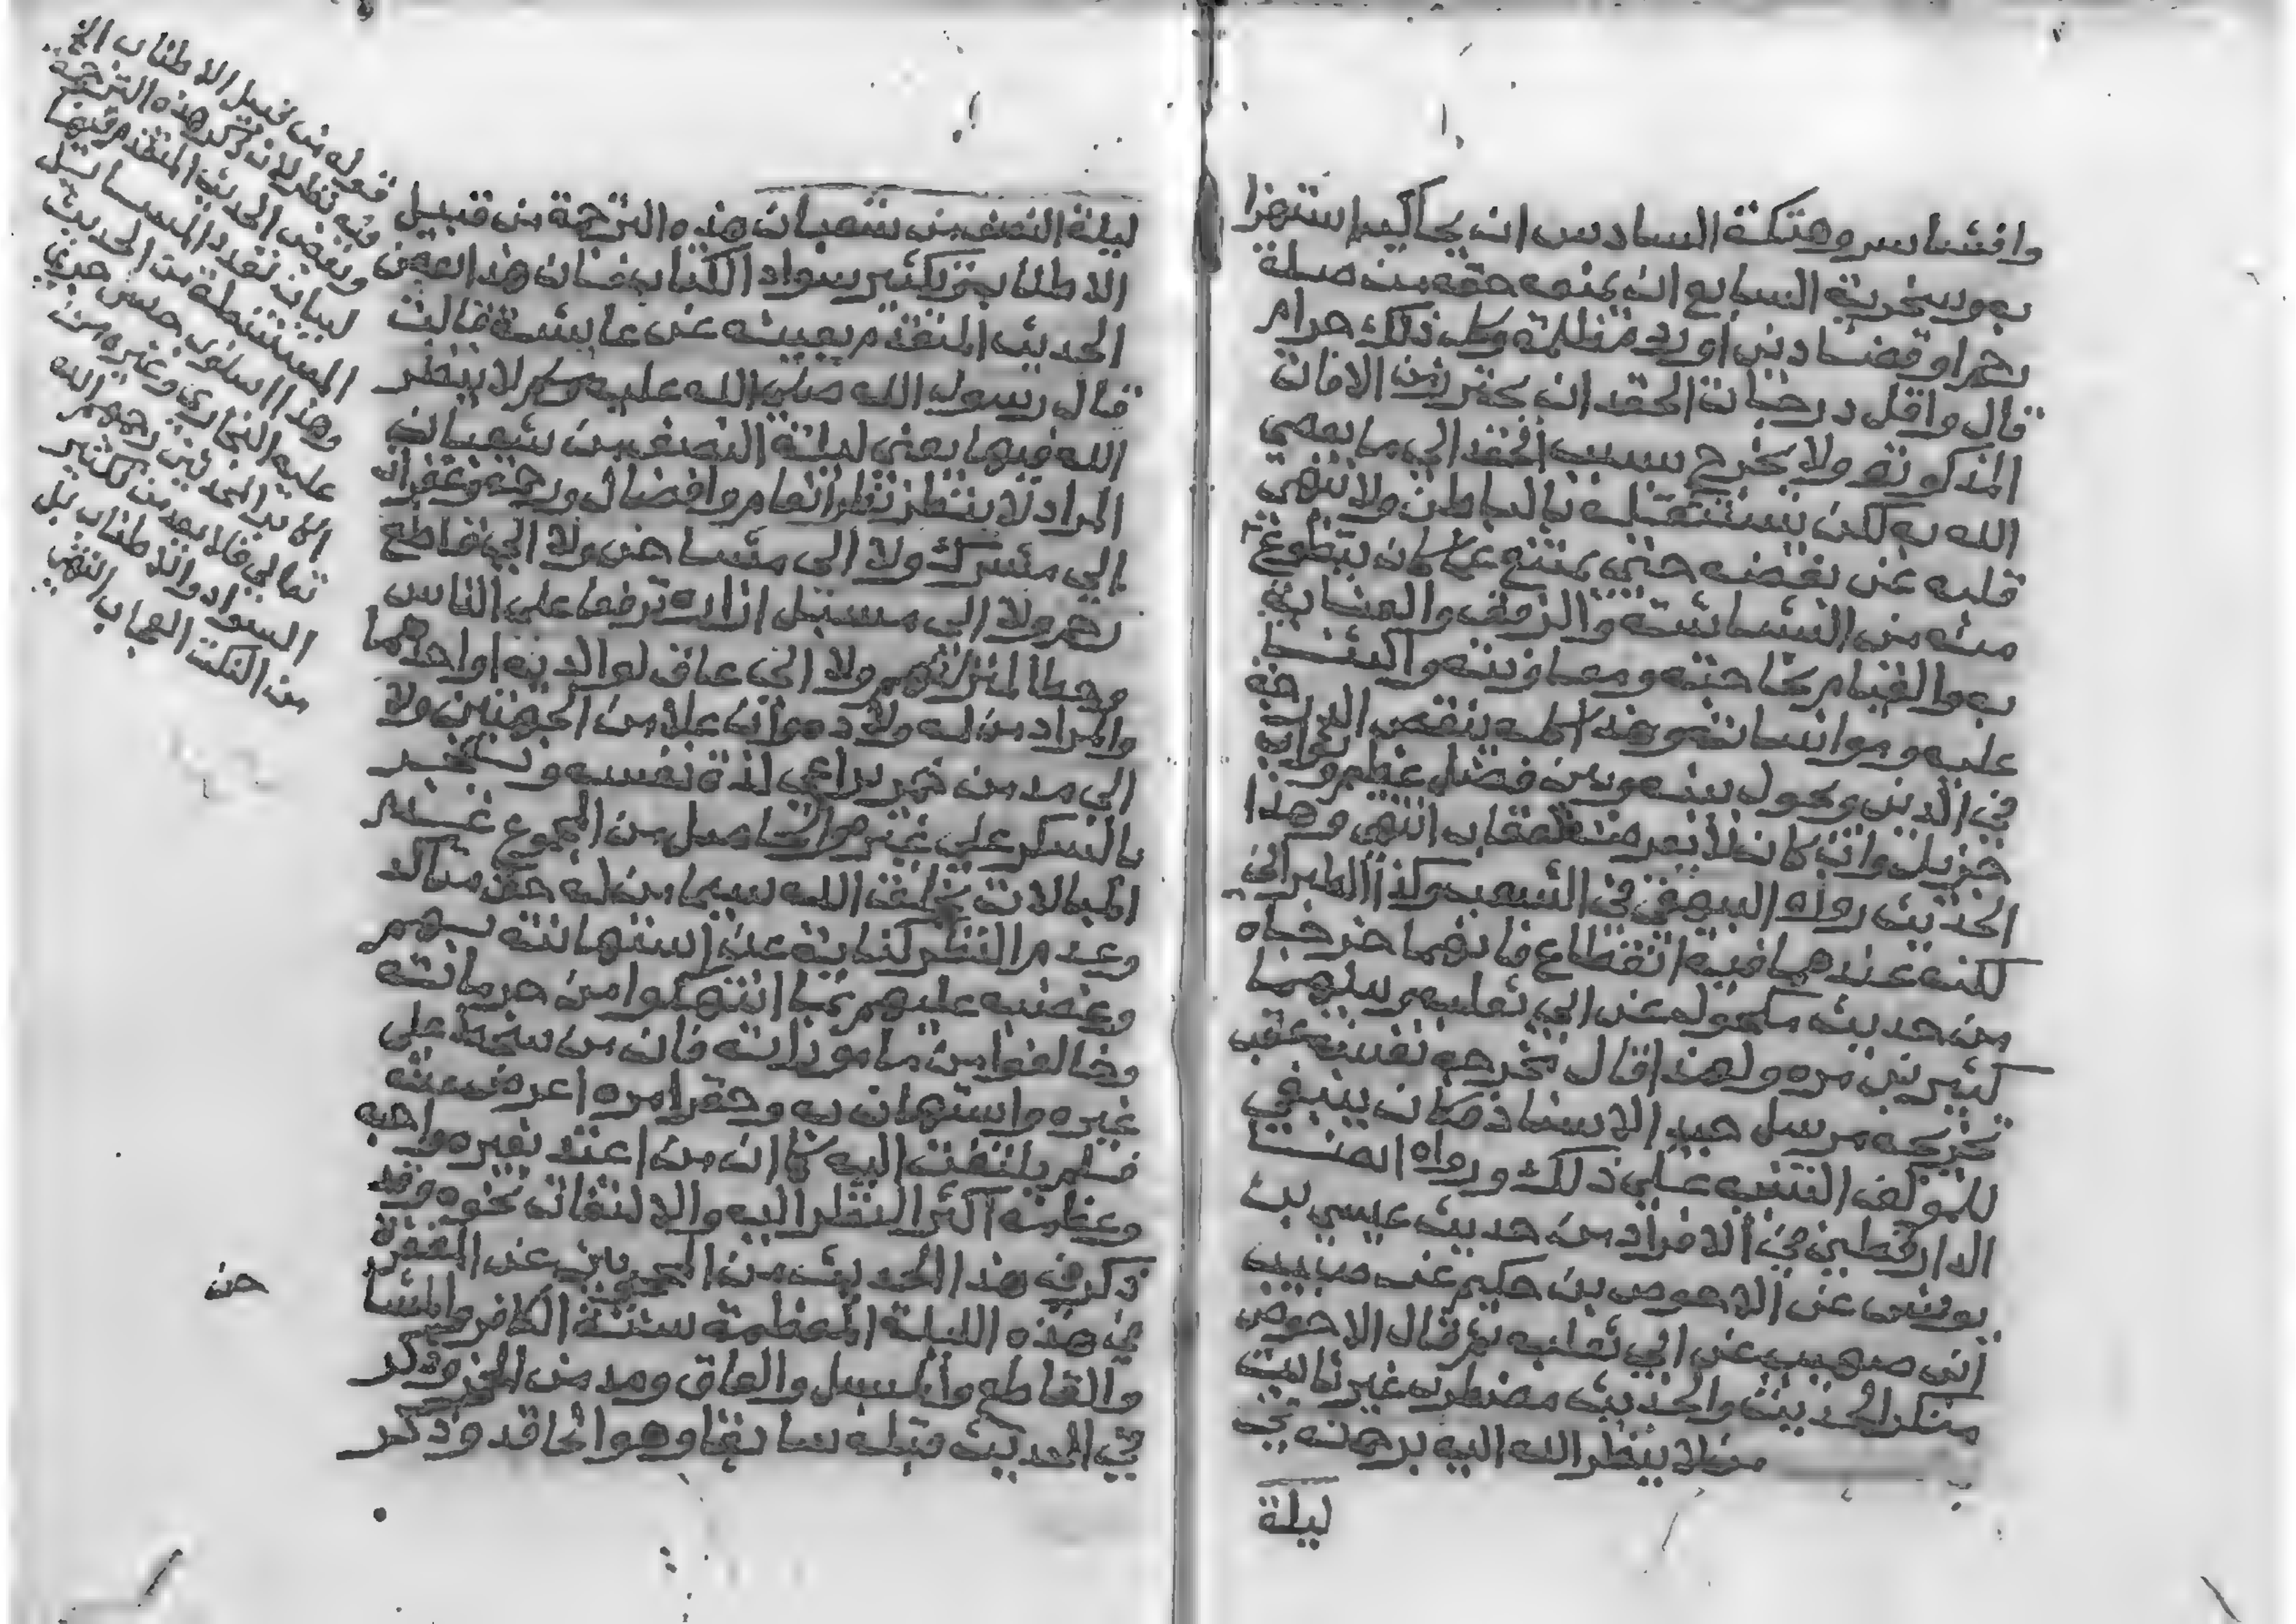 وافشا سر وهتكه السادس ان يحاكيه استهزا
به وسخرية السابع ان يمنعه حقه من صلة
رحم او قضا دين او رد مظلمة وكل ذلك حرام
قال واقل درجات الحقد ان يحترز من الافات
المذكورة ولا يخرج بسبب الحقد الى ما يعصي
الله به لكن يستثقله بالباطن ولا ينتهي
قلبه عن بغضه حتى يمتنع عما كان يتطوع
منه من البشاشة والرفق والعناية
به والقيام بحاجته ومعاونته والثنا
عليه ومواساته وهذا كله ينقص الدرجة
في الدين ويحول بينه وبين فضل عظيم وثواب
جزيل وان كان لا يعرضه لعقاب انتهى وهذا
الحديث رواه البيهقي في الشعب وكذا الطبراني
لكنه عندهما فيه انقطاع فانهما خرجاه
من حديث مكحول عن ابي ثعلبه بينهما
كثير بن مره ولهذا قال مخرجه نفسه عقب
تخريجه مرسل جيد الاسناد فكان ينبغي
للمؤلف التنبيه على ذلك ورواه ايضا
الدارقطني في الافراد من حديث عيسى بن
يونس عن الاحوص بن حكيم عن حبيب
ابن صهيب عن ابي ثعلبه ثم قال الاحوص
منكر الحديث والحديث مضطرب غير ثابت
من لا ينظر الله اليه برحمته في
ليلة
ليلة النصف من شعبان هذه الترجمة من قبيل
الاطناب بتكثير سواد الكتاب فان هذا بعض
الحديث المتقدم بعينه عن عايشة قالت
قال رسول الله صلى الله عليه وسلم لا ينظر
الله فيها يعني ليلة النصف من شعبان
المراد لا ينظر نظر انعام وافضال ورحمة وغفران
الى مشرك ولا الى مشاحن ولا الى قاطع
رحم ولا الى مسبل ازاره ترفعا على الناس
وحطا لمنزلتهم ولا الى عاق لوالديه او احدهما
والمراد من له ولادة وان علا من الجهتين ولا
الى مدمن خمر يراعي لذة نفسه
بالسكر على غير
المبالات بخلق الله سيما من له حق متاكد
وعدم النظر كناية عن استهانته بهم
وغضبه عليهم بما انتهكوا من حرماته
وخالفوا من ماموراته فان من سخط على
غيره واستهان به وحقر امره اعرض عنه
فلم يلتفت اليه كما ان من اعتد بغيره واحبه
وعظمه اكثر النظر اليه والالتفات نحوه وقد
ذكر في هذا الحديث من المحرومين عن المغفرة
في هذه الليلة المعظمة ستة الكافر والمشاحن
والقاطع والمسبل والعاق ومدمن الخمر وذكر
في الحديث قبله سابعا وهو الحاقد وذكر
قوله من قبيل الاطناب الخ
فيه نظر لانه ذكر هذه الترجمة
وبعض الحديث المتقدم فيها
لبيان تعدد المسايل
المستنبطة من الحديث
وهذا اسلوب حسن جرى
عليه البخاري وغيره من
المحدثين رحمهم الله
تعالى فلا يعد من تكثير
السواد والاطناب بل
من النكت العجاب انتهى